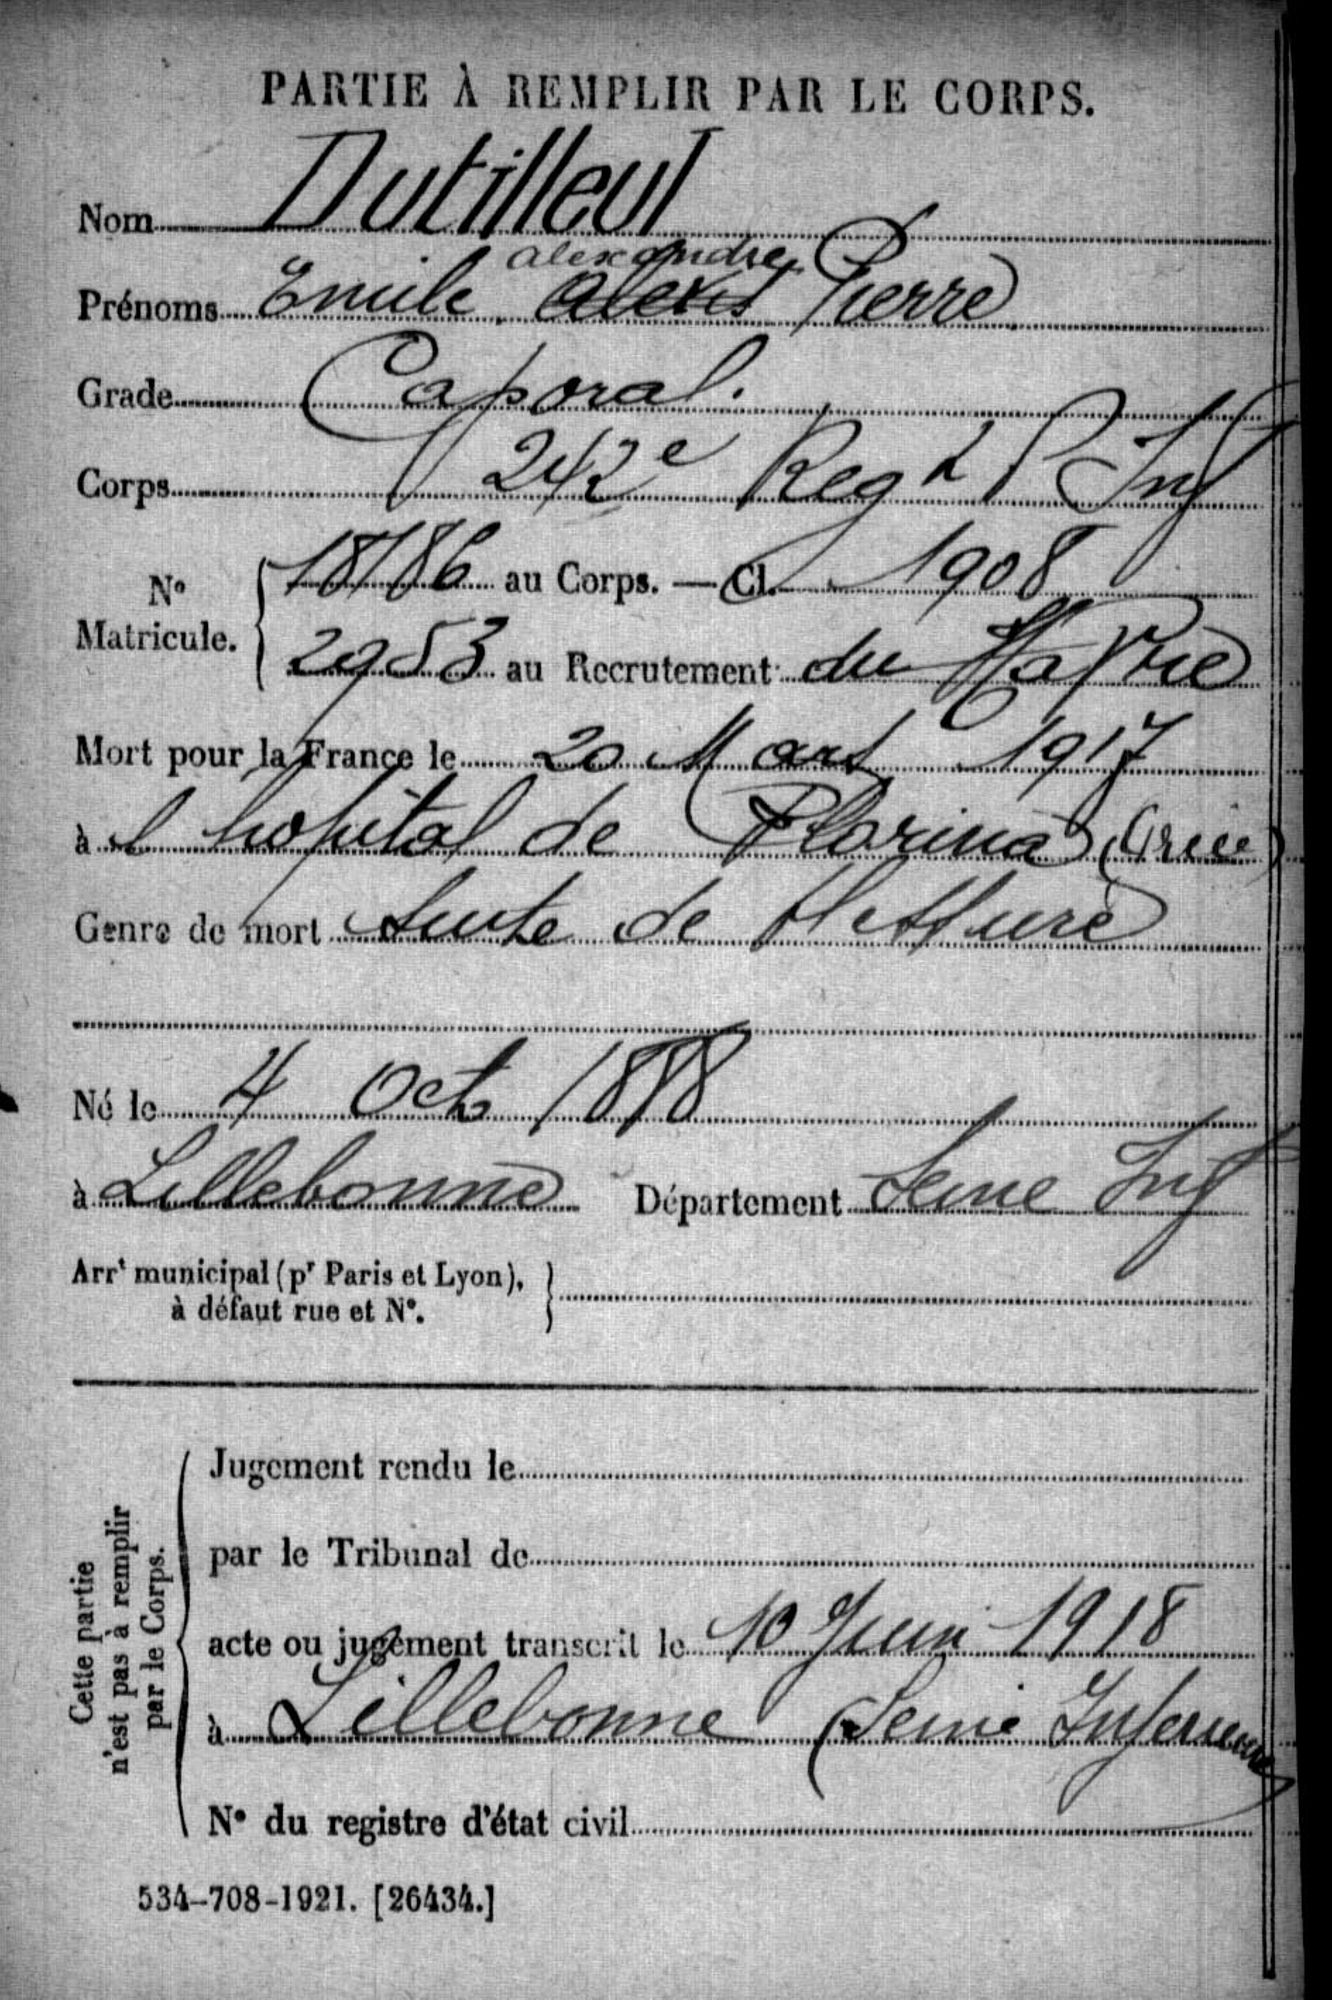 PARTIE À REMPLIR PAR LE CORPS.
Nom Dutilleul
Alexandre
Prénoms Emile Alexis Pierre
Grade Caporal.
Corps 242e Regt d'Inf
No Matricule. 18186 au Corps. — Cl. 1908
2953 au Recrutement du Havre
Mort pour la France le 20 Mars 1917
à l'hopital de Florina (Grèce)
Genre de mort Suite de blessure
Né le 4 Oct 1888
à Lillebonne Département Seine Inf
Arrt municipal (pr Paris et Lyon),
à défaut rue et No.
Cette partie
n'est pas à remplir
par le Corps.
Jugement rendu le
par le Tribunal de
acte ou jugement transcrit le 10 Juin 1918
à Lillebonne (Seine Inferieure)
No du registre d'état civil
534-708-1921. [26434.]